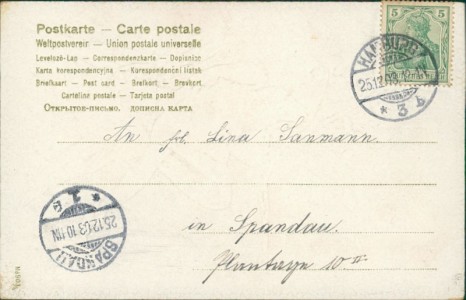 Postkarte — Carte postale
Weltpostverein — Union postale universelle
Levelező-Lap — Correspondenzkarte — Dopisnice
Karta korespondencyjna — Korespondenční lístek
Briefkaart — Post card — Brefkort — Brevkort
Cartolina postale — Tarjeta postal
Открытое-письмо. дописна карта
5 5
HAMBURG
25.12.03
* 3 b
An frl. Lina Sanmann.
* 1 c
25.12.03 10-11N
SPANDAU
in Spandau.
Plantage 10 II